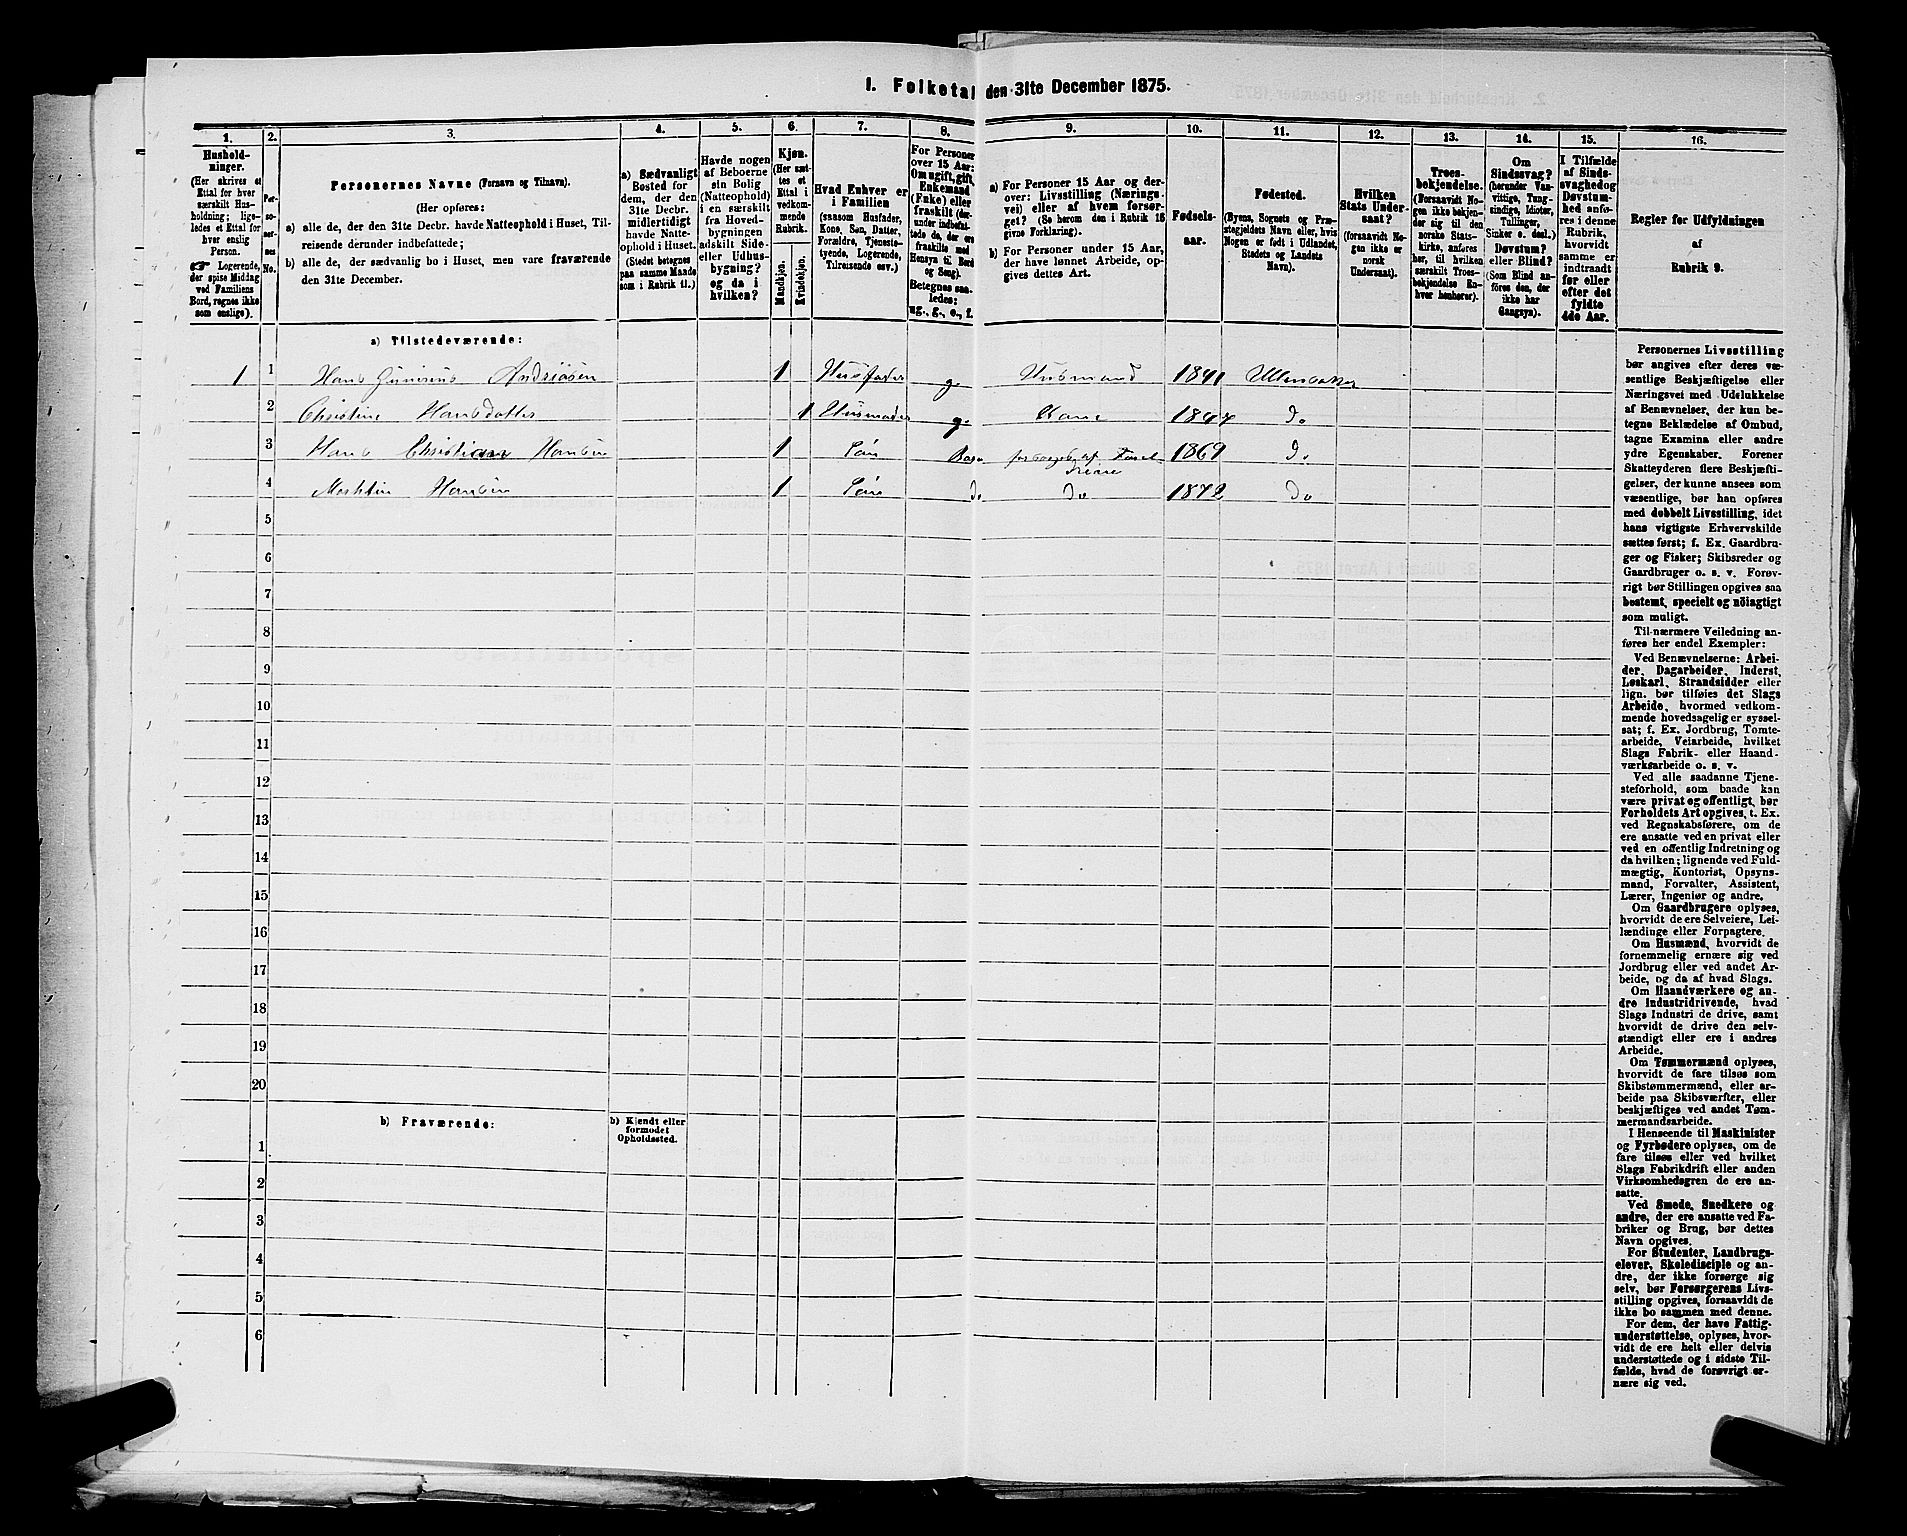 I. Folketal den 31te December 1875.
1. 2. 3. 4. 5. 6. 7. 8. 9. 10. 11. 12. 13. 14. 15. 16.
Hushold-
ninger.
(Her skrives et
Ettal for hver
særskilt Hus-
holdning; lige-
ledes et Ettal for
hver enslig
Person.
☞ Logerende,
der spise Middag
ved Familiens
Bord, regnes ikke
som enslige).
Per-
so-
ner-
nes
No.
Personernes Navne (Fornavn og Tilnavn).
(Her opføres:
a) alle de, der den 31te Decbr. havde Natteophold i Huset, Til-
reisende derunder indbefattede;
b) alle de, der sædvanlig bo i Huset, men vare fraværende
den 31te December.
a) Sædvanligt
Bosted for
dem, der den
31te Decbr.
midlertidigt
havde Natte-
ophold i Huset.
(Stedet betegnes
paa samme Maade
som i Rubrik 11.)
Havde nogen
af Beboerne
sin Bolig
(Natteophold)
i en særskilt
fra Hoved-
bygningen
adskilt Side-
eller Udhus-
bygning?
og da i
hvilken?
Kjøn.
(Her sæt-
tes et
Ettal i
vedkom-
mende
Rubrik.
Mandkjøn.
Kvindekjøn.
Hvad Enhver er
i Familien
(saasom Husfader,
Kone, Søn, Datter,
Forældre, Tjeneste-
tyende, Logerende,
Tilreisende osv.)
For Personer
over 15 Aar:
Om ugift, gift,
Enkemand
(Enke) eller
fraskilt (der-
under indbefat-
tede de, der ere
fraskilte med
Hensyn til Bord
og Seng).
Betegnes saa-
ledes:
ug., g., e., f.
a) For Personer 15 Aar og der-
over: Livsstilling (Nærings-
vei) eller af hvem forsør-
get? (Se herom den i Rubrik 16
givne Forklaring).
b) For Personer under 15 Aar,
der have lønnet Arbeide, op-
gives dettes Art.
Fødsels-
aar.
Fødested.
(Byens, Sognets og Præ-
stegjeldets Navn eller, hvis
Nogen er født i Udlandet,
Stedets og Landets
Navn).
Hvilken
Stats Under-
saat?
(forsaavidt No-
gen ikke er
norsk
Undersaat).
Troes-
bekjendelse.
(Forsaavidt No-
gen ikke bekjen-
der sig til den
norske Stats-
kirke, anføres
her, til hvilken
særskilt Troes-
bekjendelse En-
hver henhører).
Om
Sindssvag?
(herunder Van-
vittige, Tung-
sindige, Idioter,
Tullinger,
Sinker o. desl.)
Døvstum?
eller Blind?
(Som Blind an-
føres den, der
ikke har
Gangsyn).
I Tilfælde
af Sinds-
svaghed og
Døvstum-
hed anfø-
res i denne
Rubrik,
hvorvidt
samme er
indtraadt
før eller
efter det
fyldte
4de Aar.
Regler for Udfyldningen
af
Rubrik 9.
a) Tilstedeværende:
1 1 Hans Andriasen 1 Husfader g. Husmand 1841 Ullensaker
2 Christine Hansdatter 1 Husmoder g. Kone 1847 Do
3 Hans Christian Hansen 1 Søn forsørges af 1869 Do
4 Hansen 1 Søn do Do 1872 Do
5
6
7
8
9
10
11
12
13
14
15
16
17
18
19
20
b) Fraværende:
b) Kjendt eller
formodet
Opholdssted.
1
2
3
4
5
6
Personernes Livsstilling
bør angives efter deres væ-
sentlige Beskjæftigelse eller
Næringsvei med Udelukkelse
af Benævnelser, der kun be-
tegne Beklædelse af Ombud,
tagne Examina eller andre
ydre Egenskaber. Forener
Skatteyderen flere Beskjæfti-
gelser, der kunne ansees som
væsentlige, bør han opføres
med dobbelt Livsstilling, idet
hans vigtigste Erhvervskilde
sættes først; f. Ex. Gaardbru-
ger og Fisker; Skibsreder og
Gaardbruger o. s. v. Forøv-
rigt bør Stillingen opgives saa
bestemt, specielt og nöiagtigt
som muligt.
Til nærmere Veiledning an-
føres her endel Exempler:
Ved Benævnelserne: Arbei-
der, Dagarbeider, Inderst,
Løskarl, Strandsidder eller
lign. bør tilføies det Slags
Arbeide, hvormed vedkom-
mende hovedsagelig er syssel-
sat; f. Ex. Jordbrug, Tomte-
arbeide, Veiarbeide, hvilket
Slags Fabrik- eller Haand-
værksarbeide o. s. v.
Ved alle saadanne Tjene-
steforhold, som baade kan
være privat og offentligt, bør
Forholdets Art opgives, t. Ex.
ved Regnskabsførere, om de
ere ansatte ved en privat eller
ved en offentlig Indretning og
da hvilken; lignende ved Fuld-
mægtig, Kontorist, Opsyns-
mand, Forvalter, Assistent,
Lærer, Ingeniør og andre.
Om Gaardbrugere oplyses,
hvorvidt de ere Selveiere, Lei-
lændinge eller Forpagtere.
Om Husmænd, hvorvidt de
fornemmelig ernære sig ved
Jordbrug eller ved andet Ar-
beide, og da af hvad Slags.
Om Haandværkere og an-
dre Industridrivende, hvad
Slags Industri de drive, samt
hvorvidt de drive den selv-
stændigt eller ere i andres
Arbeide.
Om Tømmermænd oplyses,
hvorvidt de fare tilsøs som
Skibstømmermænd, eller ar-
beide paa Skibsværfter, eller
beskjæftiges ved andet Tøm-
mermandsarbeide.
I Henseende til Maskinister
og Fyrbødere oplyses, om de
fare tilsøs eller ved hvilket
Slags Fabrikdrift eller anden
Virksomhedsgren de ere an-
satte.
Ved Smede, Snedkere og
andre, der ere ansatte ved Fa-
briker og Brug, bør dettes
Navn opgives.
For Studenter, Landbrugs-
elever, Skoledisciple og an-
dre, der ikke forsørge sig
selv, bør Forsørgerens Livs-
stilling opgives, forsaavidt de
ikke bo sammen med denne.
For dem, der have Fattig-
understøttelse, oplyses, hvor-
vidt de ere helt eller delvis
understøttede og i sidste Til-
fælde, hvad de forøvrigt er-
nære sig ved.